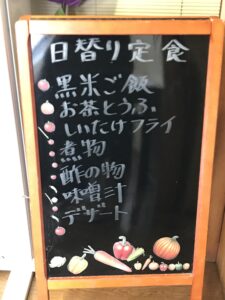 日替り定食
黒米ご飯
お茶とうふ
しいたけフライ
煮物
酢の物
味噌汁
デザート